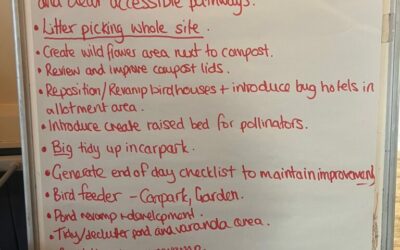 and clear accessible pathways.
• Litter picking whole site.
• Create wild flower area next to compost.
• Review and improve compost lids.
• Reposition/Revamp birdhouses + introduce bug hotels in
allotment area.
• Introduce create raised bed for pollinators.
• Big tidy up in carpark.
• Generate end of day checklist to maintain improvements
• Bird feeder - Carpark, Garden.
• Pond revamp + development.
• Tidy/declutter pond and varanda area.